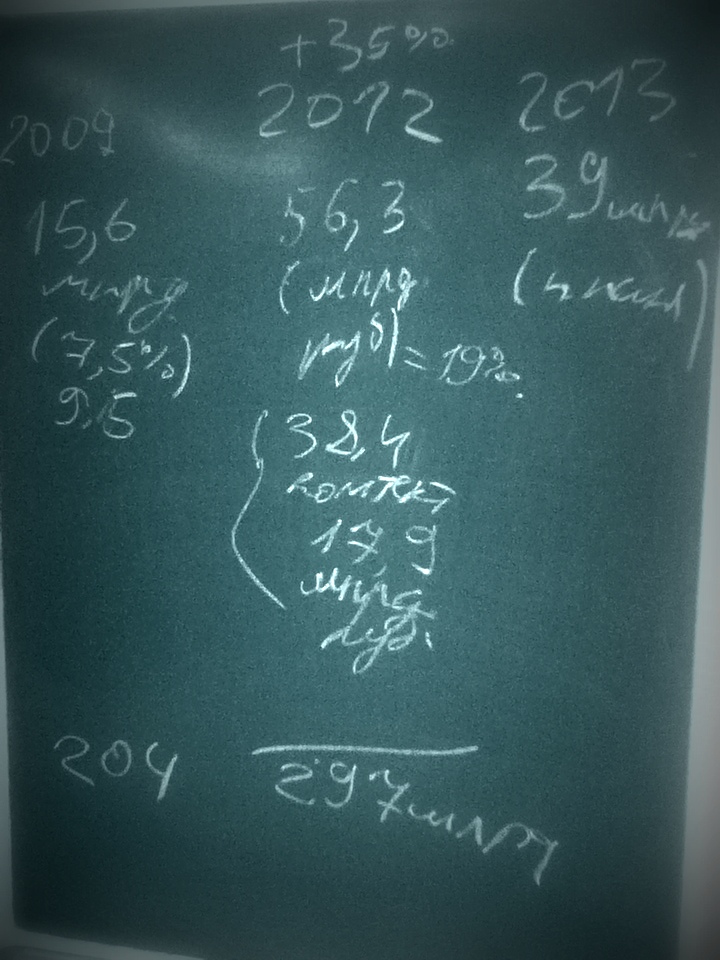 +35%
2009
2012
2013
15,6
млрд
(7,5%)
9,5
56,3
(млрд
руб) = 19%.
38,4
17,9
млрд
руб.
39 млрд
204
297 млрд